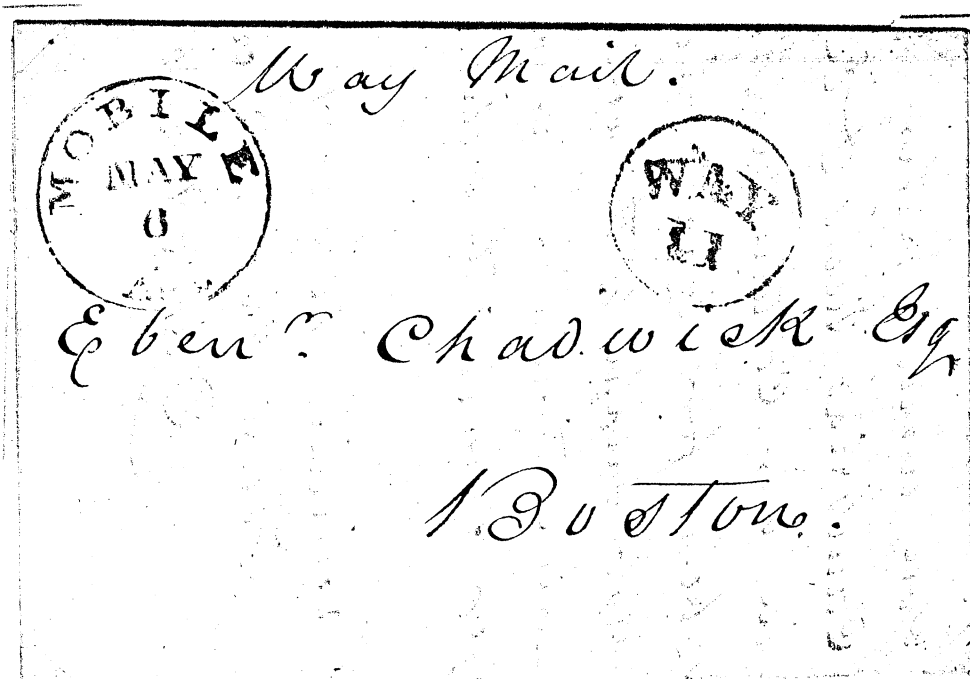 Way Mail.
MOBILE
MAY
6
WAY
11
Eben.r Chadwick Esq
Boston.